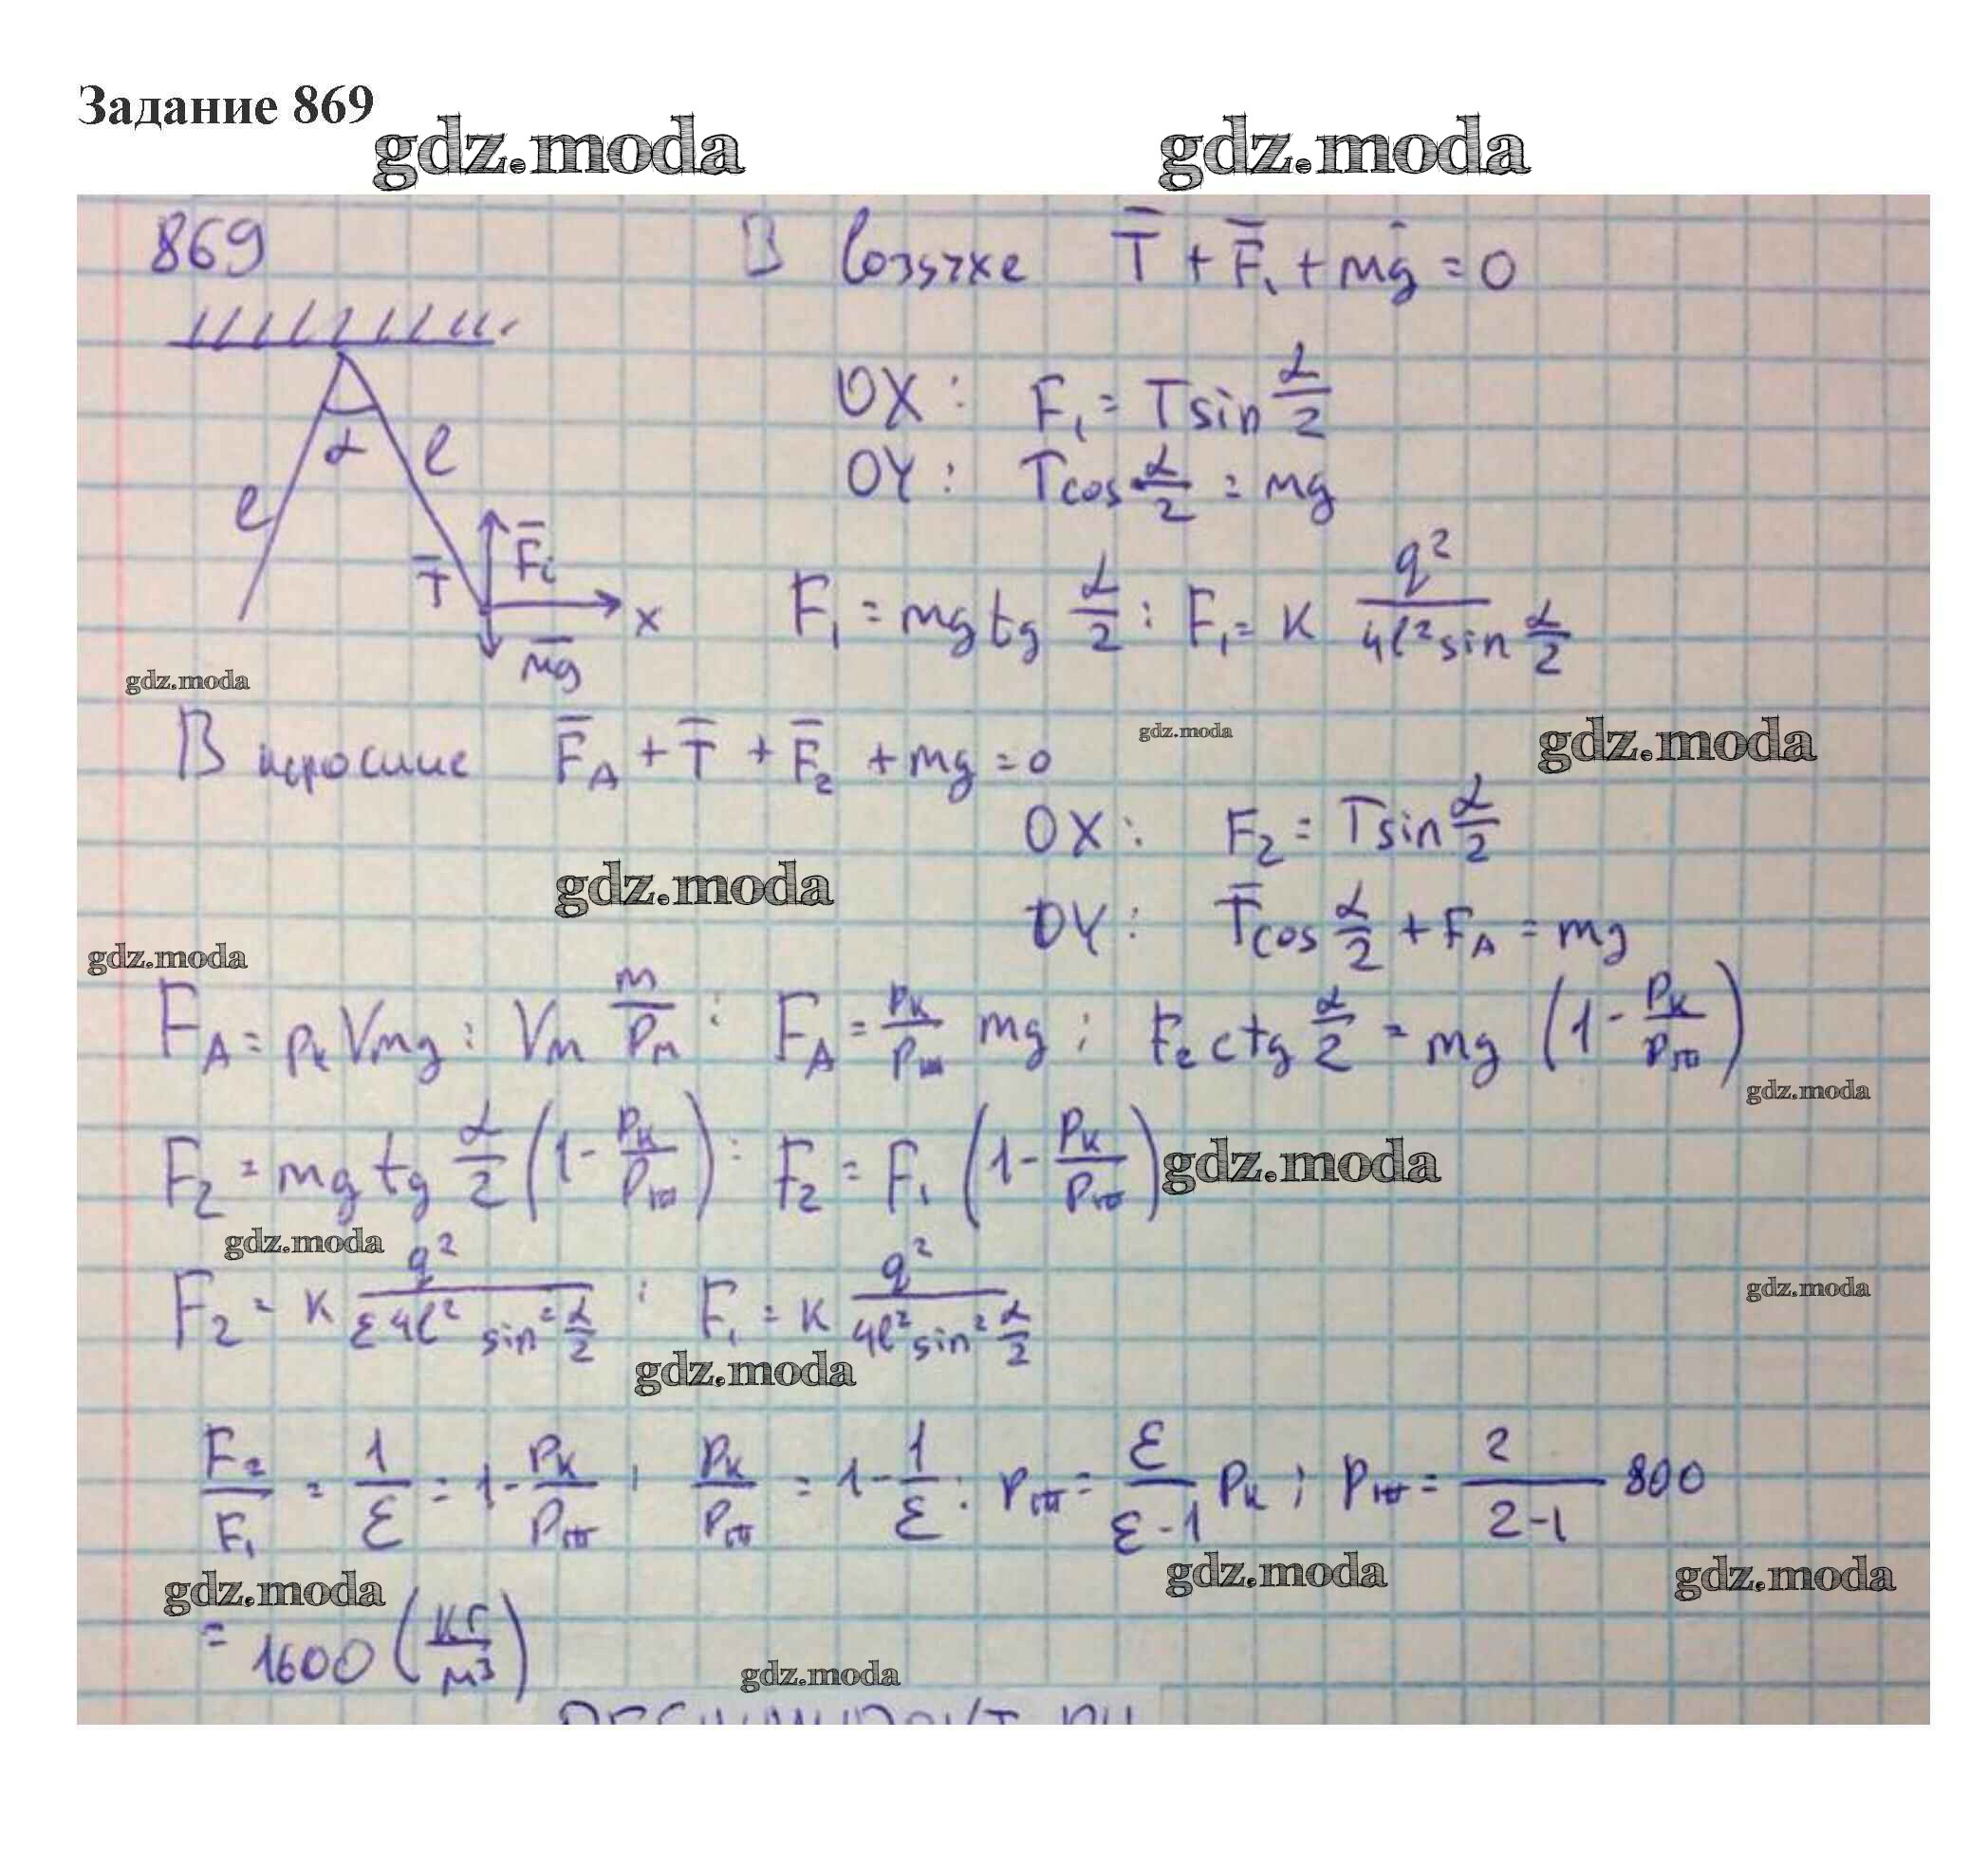 Задание 869
gdz.moda gdz.moda
869 В воздухе T̅ + F̅₁ + mg̅ = 0
OX: F₁ = T sin α/2
α l
l OY: T cos α/2 = mg
T̅ F̅ x F₁ = mg tg α/2 : F₁ = K q²/(4l² sin α/2)
m̅g̅
gdz.moda
В керосине F̅A + T̅ + F̅₂ + mg = 0 gdz.moda gdz.moda
OX: F₂ = T sin α/2
gdz.moda
OY: T̅ cos α/2 + FA = mg
gdz.moda
FA = ρк Vm g : Vm m/ρm : FA = ρк/ρш mg ; F₂ ctg α/2 = mg (1 - ρк/ρш)
gdz.moda
F₂ = mg tg α/2 (1 - ρк/ρш) : F₂ = F₁ (1 - ρк/ρш) gdz.moda
gdz.moda
F₂ = K q²/(ε4l² sin² α/2) ; F₁ = K q²/(4l² sin² α/2) gdz.moda
gdz.moda
F₂/F₁ = 1/ε = 1 - ρк/ρш ; ρк/ρш = 1 - 1/ε : ρш = ε/(ε-1) ρк ; ρш = 2/(2-1) 800
gdz.moda gdz.moda gdz.moda
= 1600 (кг/м³)
gdz.moda